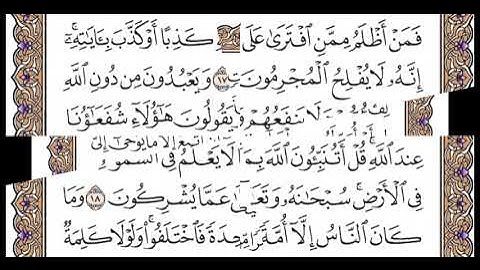 فَمَنْ أَظْلَمُ مِمَّنِ ٱفْتَرَىٰ عَلَى كَذِبًا أَوْ كَذَّبَ بِـَٔايَٰتِهِۦٓ ۚ
إِنَّهُۥ لَا يُفْلِحُ ٱلْمُجْرِمُونَ ١٧ وَيَعْبُدُونَ مِن دُونِ ٱللَّهِ
لَا يَنفَعُهُمْ وَيَقُولُونَ هَٰٓؤُلَآءِ شُفَعَٰٓؤُنَا
إِلَّا مَا يُوحَىٰٓ إِلَىَّ
عِندَ ٱللَّهِ ۚ قُلْ أَتُنَبِّـُٔونَ ٱللَّهَ بِمَا لَا يَعْلَمُ فِى ٱلسَّمَٰوَ
فِى ٱلْأَرْضِ ۚ سُبْحَٰنَهُۥ وَتَعَٰلَىٰ عَمَّا يُشْرِكُونَ ١٨ وَمَا
كَانَ ٱلنَّاسُ إِلَّآ أُمَّةً وَٰحِدَةً فَٱخْتَلَفُوا۟ ۚ وَلَوْلَا كَلِمَةٌ